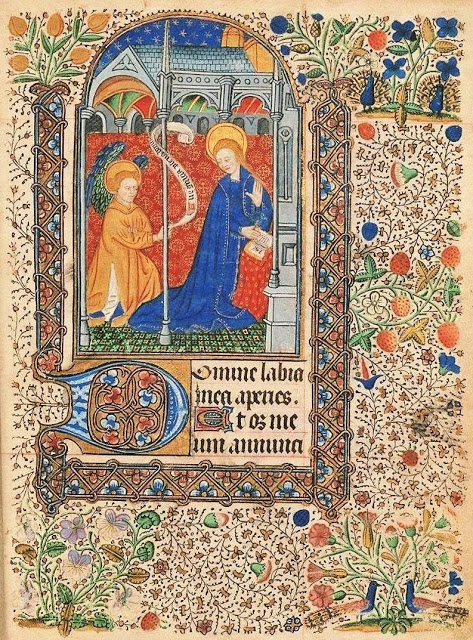 Domine labia
mea aperies.
Et os me
um annuncia